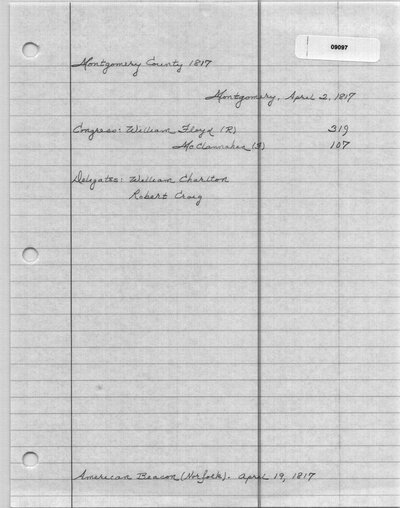 09097
Montgomery County 1817
Montgomery, April 2, 1817
Congress: William Floyd (R) 319
McClannahan (F) 107
Delegates: William Chariton
Robert Craig
American Beacon (Norfolk). April 19, 1817